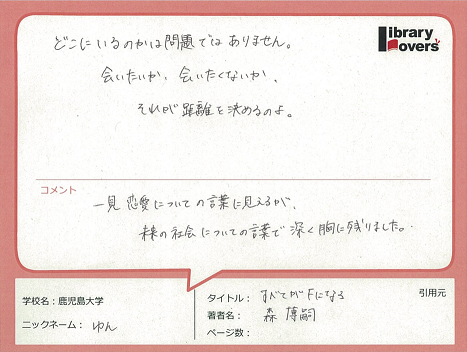 どこにいるのかは問題ではありません。
Library Lovers'
会いたいか、会いたくないか、
それが距離を決めるのよ。
コメント
一見 恋愛についての言葉に見えるが、
未来の社会についての言葉で深く胸に残りました。
学校名：鹿児島大学
ニックネーム：ゆん
タイトル：すべてがFになる
引用元
著者名：森 博嗣
ページ数：